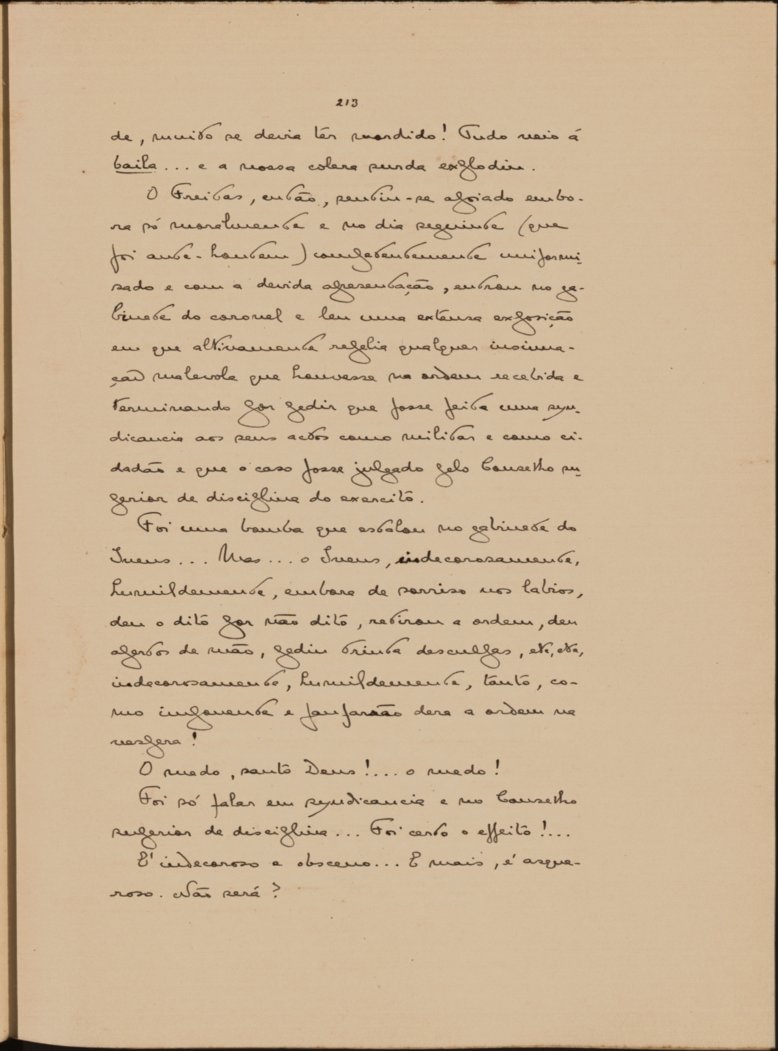 213
de, muito se devia têr mordido! Tudo veio á
baila... e a nossa colera surda explodiu.
O Freitas, então, sentiu-se apoiado embo-
ra só moralmente e no dia seguinte (que
foi ante-hontem) competentemente uniformi-
sado e com a devida apresentação, entrou no ga-
binete do coronel e leu uma extensa exposição
em que altivamente repelia qualquer insinua-
ção malevola que houvesse na ordem recebida e
terminando por pedir que fosse feita uma syn-
dicancia aos seus actos como militar e como ci-
dadão e que o caso fosse julgado pelo Conselho su-
perior de disciplina do exercito.
Foi uma bomba que estalou no gabinete do
Ivens... Mas... o Ivens, indecorosamente,
humildemente, embora de sorriso nos labios,
deu o dito por não dito, retirou a ordem, deu
apertos de mão, pediu trinta desculpas, etc, etc,
indecorosamente, humildemente, tanto, co-
mo imponente e fanfarrão dera a ordem na
vespera!
O medo, santo Deus!... o medo!
Foi só falar em syndicancia e no Conselho
superior de disciplina... Foi certo o effeito!...
E' indecoroso e obsceno... E mais, é asque-
roso. Não será?